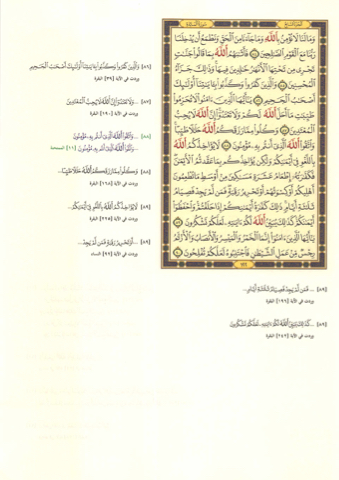 الجزء السابع
سورة المائدة
وَمَا لَنَا لَا نُؤْمِنُ بِاللَّهِ وَمَا جَاءَنَا مِنَ الْحَقِّ وَنَطْمَعُ أَنْ يُدْخِلَنَا
رَبُّنَا مَعَ الْقَوْمِ الصَّالِحِينَ ٨٤ فَأَثَابَهُمُ اللَّهُ بِمَا قَالُوا جَنَّاتٍ
تَجْرِي مِنْ تَحْتِهَا الْأَنْهَارُ خَالِدِينَ فِيهَا وَذَٰلِكَ جَزَاءُ
الْمُحْسِنِينَ ٨٥ وَالَّذِينَ كَفَرُوا وَكَذَّبُوا بِآيَاتِنَا أُولَٰئِكَ
أَصْحَابُ الْجَحِيمِ ٨٦ يَا أَيُّهَا الَّذِينَ آمَنُوا لَا تُحَرِّمُوا
طَيِّبَاتِ مَا أَحَلَّ اللَّهُ لَكُمْ وَلَا تَعْتَدُوا إِنَّ اللَّهَ لَا يُحِبُّ
الْمُعْتَدِينَ ٨٧ وَكُلُوا مِمَّا رَزَقَكُمُ اللَّهُ حَلَالًا طَيِّبًا
وَاتَّقُوا اللَّهَ الَّذِي أَنْتُمْ بِهِ مُؤْمِنُونَ ٨٨ لَا يُؤَاخِذُكُمُ اللَّهُ
بِاللَّغْوِ فِي أَيْمَانِكُمْ وَلَٰكِنْ يُؤَاخِذُكُمْ بِمَا عَقَّدْتُمُ الْأَيْمَانَ
فَكَفَّارَتُهُ إِطْعَامُ عَشَرَةِ مَسَاكِينَ مِنْ أَوْسَطِ مَا تُطْعِمُونَ
أَهْلِيكُمْ أَوْ كِسْوَتُهُمْ أَوْ تَحْرِيرُ رَقَبَةٍ فَمَنْ لَمْ يَجِدْ فَصِيَامُ
ثَلَاثَةِ أَيَّامٍ ذَٰلِكَ كَفَّارَةُ أَيْمَانِكُمْ إِذَا حَلَفْتُمْ وَاحْفَظُوا
أَيْمَانَكُمْ كَذَٰلِكَ يُبَيِّنُ اللَّهُ لَكُمْ آيَاتِهِ لَعَلَّكُمْ تَشْكُرُونَ ٨٩
يَا أَيُّهَا الَّذِينَ آمَنُوا إِنَّمَا الْخَمْرُ وَالْمَيْسِرُ وَالْأَنْصَابُ وَالْأَزْلَامُ
رِجْسٌ مِنْ عَمَلِ الشَّيْطَانِ فَاجْتَنِبُوهُ لَعَلَّكُمْ تُفْلِحُونَ ٩٠
١٢٢
[٨٦] ... وَالَّذِينَ كَفَرُوا وَكَذَّبُوا بِآيَاتِنَا أُولَٰئِكَ أَصْحَابُ الْجَحِيمِ
وردت في الآية [٣٩] البقرة
[٨٧] ... وَلَا تَعْتَدُوا إِنَّ اللَّهَ لَا يُحِبُّ الْمُعْتَدِينَ
وردت في الآية [١٩٠] البقرة
[٨٨] ... وَاتَّقُوا اللَّهَ الَّذِي أَنْتُمْ بِهِ مُؤْمِنُونَ
... وَاتَّقُوا اللَّهَ الَّذِي أَنْتُمْ بِهِ مُؤْمِنُونَ [١١] الممتحنة
[٨٨] وَكُلُوا مِمَّا رَزَقَكُمُ اللَّهُ حَلَالًا طَيِّبًا ...
وردت في الآية [١٦٨] البقرة
[٨٩] لَا يُؤَاخِذُكُمُ اللَّهُ بِاللَّغْوِ فِي أَيْمَانِكُمْ ...
وردت في الآية [٢٢٥] البقرة
[٨٩] ... أَوْ تَحْرِيرُ رَقَبَةٍ فَمَنْ لَمْ يَجِدْ ...
وردت في الآية [٩٢] النساء
[٨٩] ... فَمَنْ لَمْ يَجِدْ فَصِيَامُ ثَلَاثَةِ أَيَّامٍ ...
وردت في الآية [١٩٦] البقرة
[٨٩] ... كَذَٰلِكَ يُبَيِّنُ اللَّهُ لَكُمْ آيَاتِهِ لَعَلَّكُمْ تَشْكُرُونَ
وردت في الآية [٢٤٢] البقرة